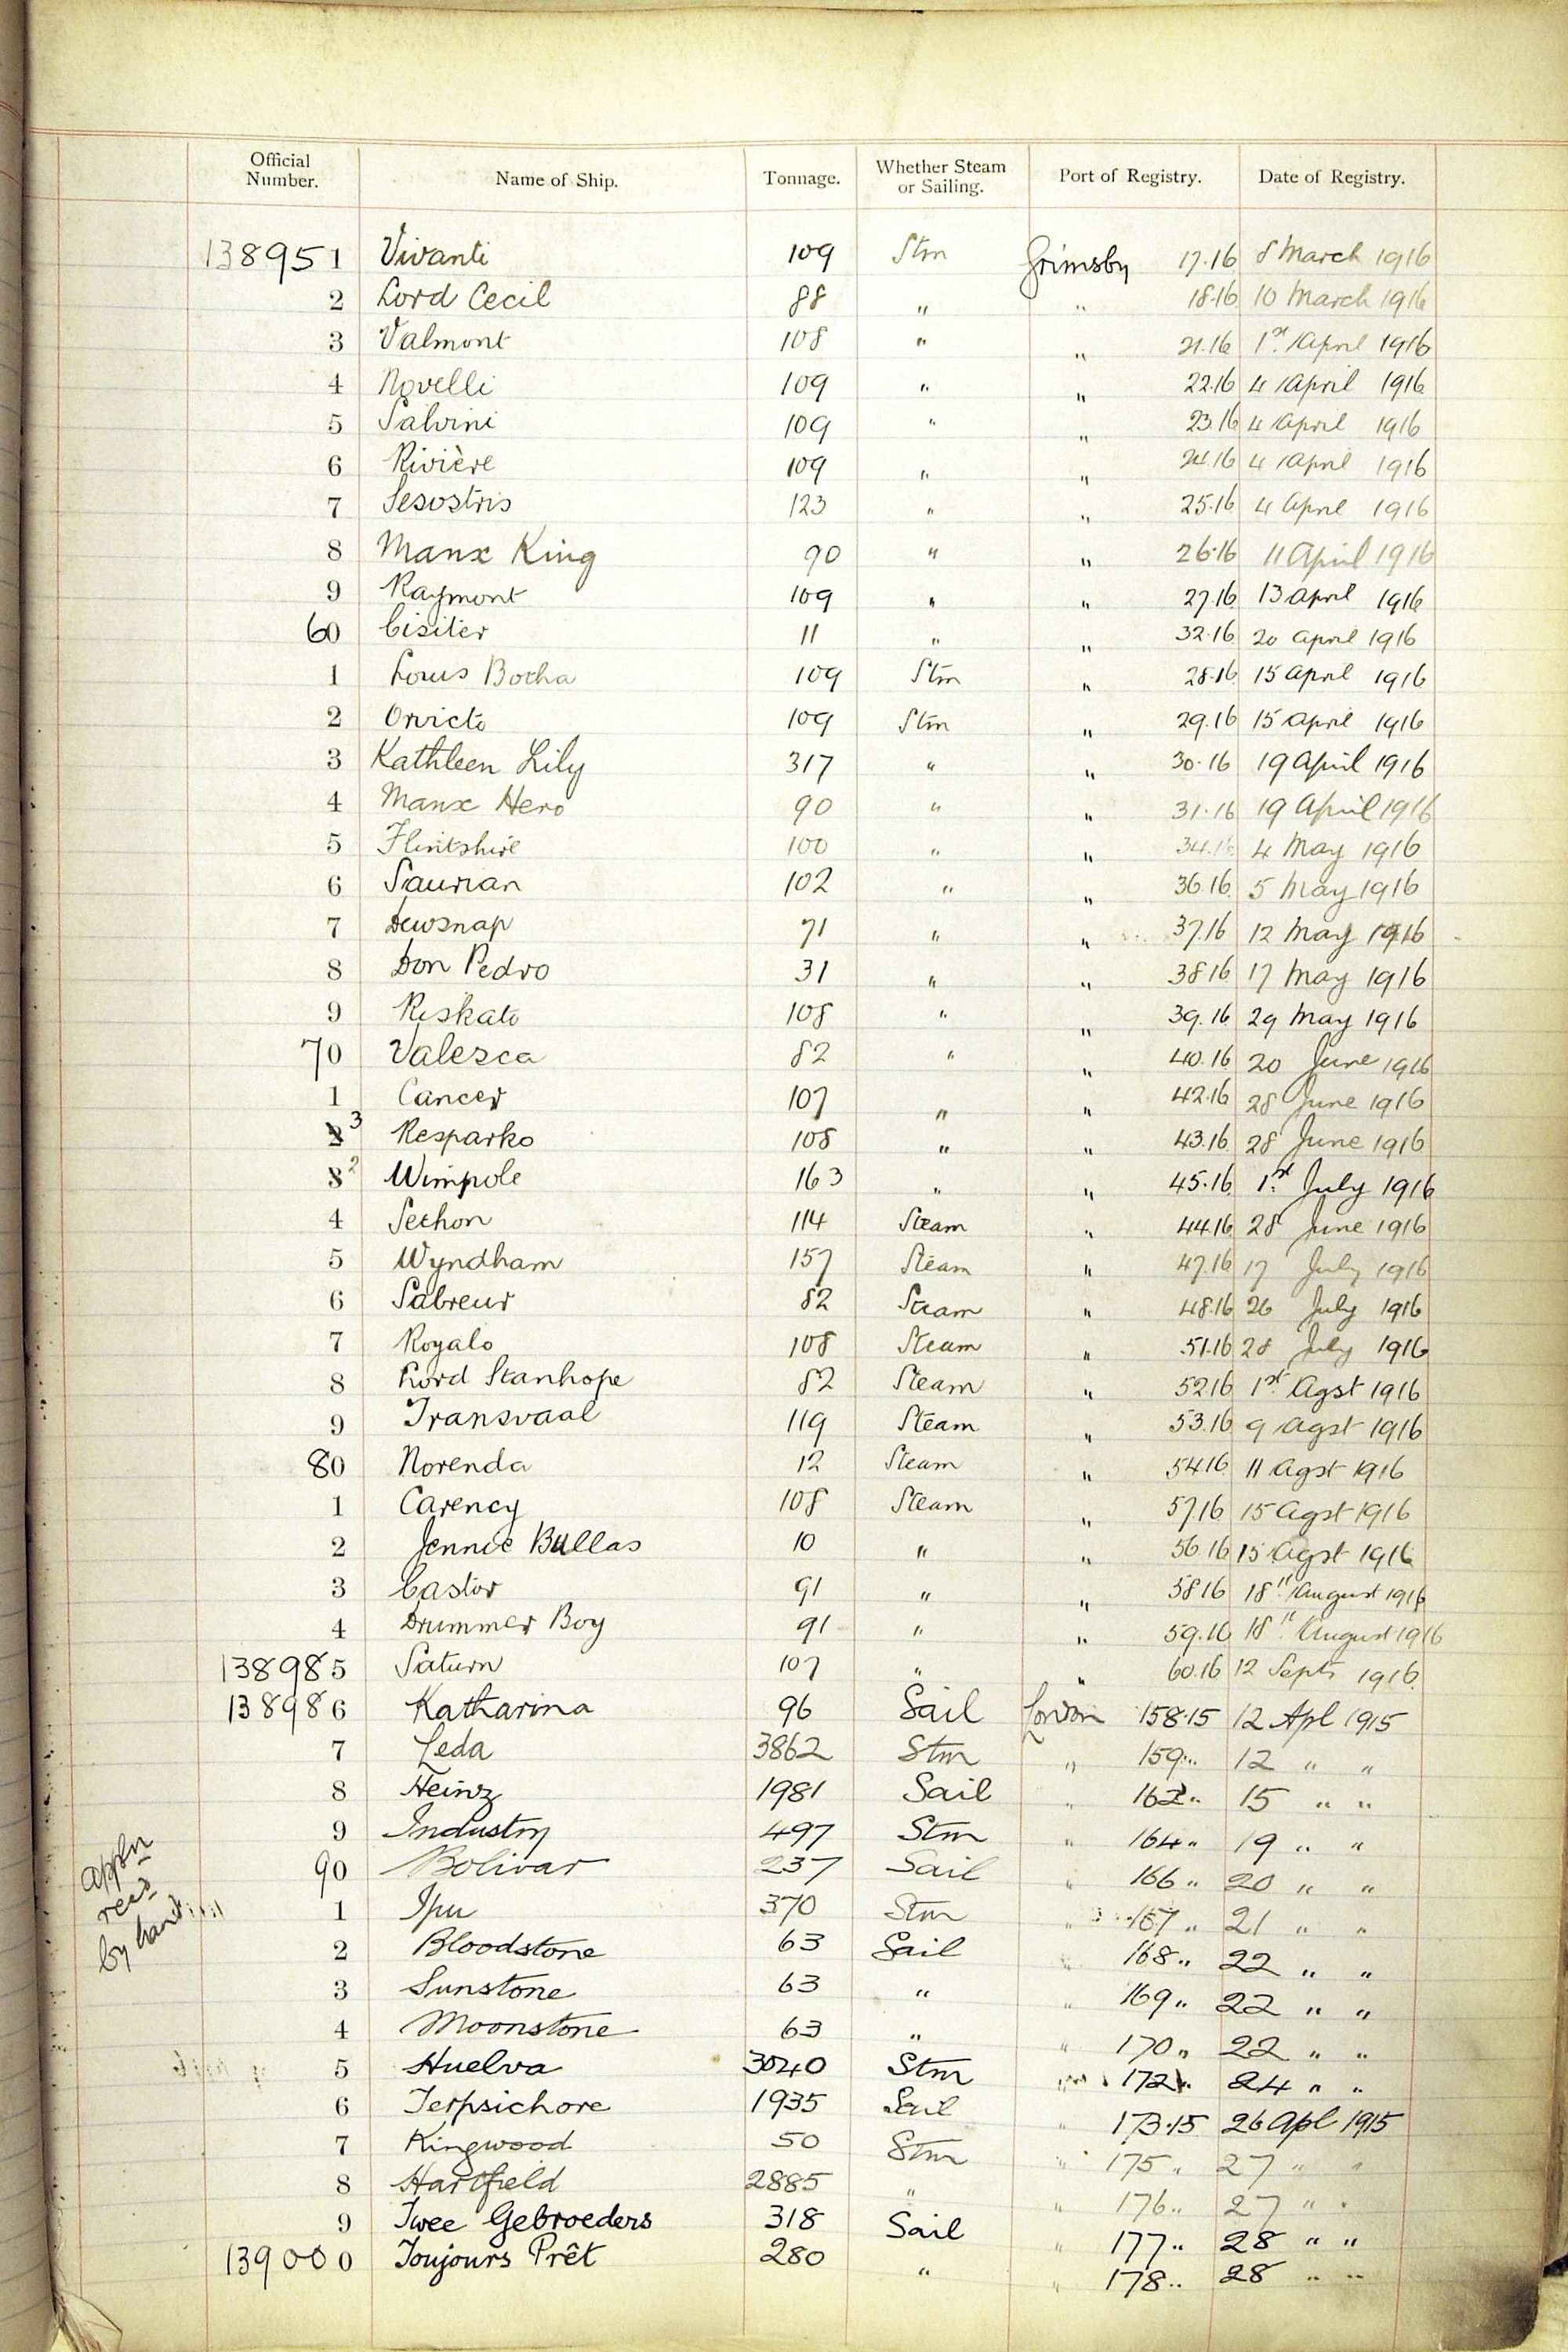 Official Number. Name of Ship. Tonnage. Whether Steam or Sailing. Port of Registry. Date of Registry.
138951 Vivanti 109 Stm Grimsby 17.16 8 March 1916
2 Lord Cecil 88 " " 18.16 10 March 1916
3 Valmont 108 " " 21.16 1st April 1916
4 Novelli 109 " " 22.16 4 April 1916
5 Salvini 109 " " 23.16 4 April 1916
6 Rivière 109 " " 24.16 4 April 1916
7 Sesostris 123 " " 25.16 4 April 1916
8 Manx King 90 " " 26.16 11 April 1916
9 Raymont 109 " " 27.16 13 April 1916
60 Cisiter 11 " " 32.16 20 April 1916
1 Louis Botha 109 Stm " 28.16 15 April 1916
2 Orvicto 109 Stm " 29.16 15 April 1916
3 Kathleen Lily 317 " " 30.16 19 April 1916
4 Manx Hero 90 " " 31.16 19 April 1916
5 Flintshire 100 " " 34.16 4 May 1916
6 Saurian 102 " " 36.16 5 May 1916
7 Dewsnap 71 " " 37.16 12 May 1916
8 Don Pedro 31 " " 38.16 17 May 1916
9 Riskato 108 " " 39.16 29 May 1916
70 Valesca 82 " " 40.16 20 June 1916
1 Cancer 107 " " 42.16 28 June 1916
2 3 Resparko 108 " " 43.16 28 June 1916
3 2 Wimpole 163 " " 45.16 1st July 1916
4 Sethon 114 Steam " 44.16 28 June 1916
5 Wyndham 157 Steam " 47.16 17 July 1916
6 Sabreur 82 Steam " 48.16 26 July 1916
7 Royalo 108 Steam " 51.16 28 July 1916
8 Lord Stanhope 82 Steam " 52.16 1st Agst 1916
9 Transvaal 119 Steam " 53.16 9 Agst 1916
80 Norenda 12 Steam " 54.16 11 Agst 1916
1 Carency 108 Steam " 57.16 15 Agst 1916
2 Jennie Bullas 10 " " 56.16 15 Agst 1916
3 Castor 91 " " 58.16 18th August 1916
4 Drummer Boy 91 " " 59.16 18th August 1916
138985 Saturn 107 " " 60.16 12 Septr 1916
138986 Katharina 96 Sail London 158.15 12 Apl 1915
7 Leda 3862 Stm " 159 " 12 " "
8 Heinz 1981 Sail " 162 " 15 " "
9 Industry 497 Stm " 164 " 19 " "
90 Bolivar 237 Sail " 166 " 20 " "
1 Ipu 370 Stm " 167 " 21 " "
2 Bloodstone 63 Sail " 168 " 22 " "
3 Sunstone 63 " " 169 " 22 " "
4 Moonstone 63 " " 170 " 22 " "
5 Huelva 3040 Stm " 172 " 24 " "
6 Terpsichore 1935 Sail " 173.15 26 Apl 1915
7 Kingwood 50 Stm " 175 " 27 " "
8 Hartfield 2885 " " 176 " 27 " "
9 Twee Gebroeders 318 Sail " 177 " 28 " "
139000 Toujours Prêt 280 " " 178 " 28 " "
appln
recd
by hand